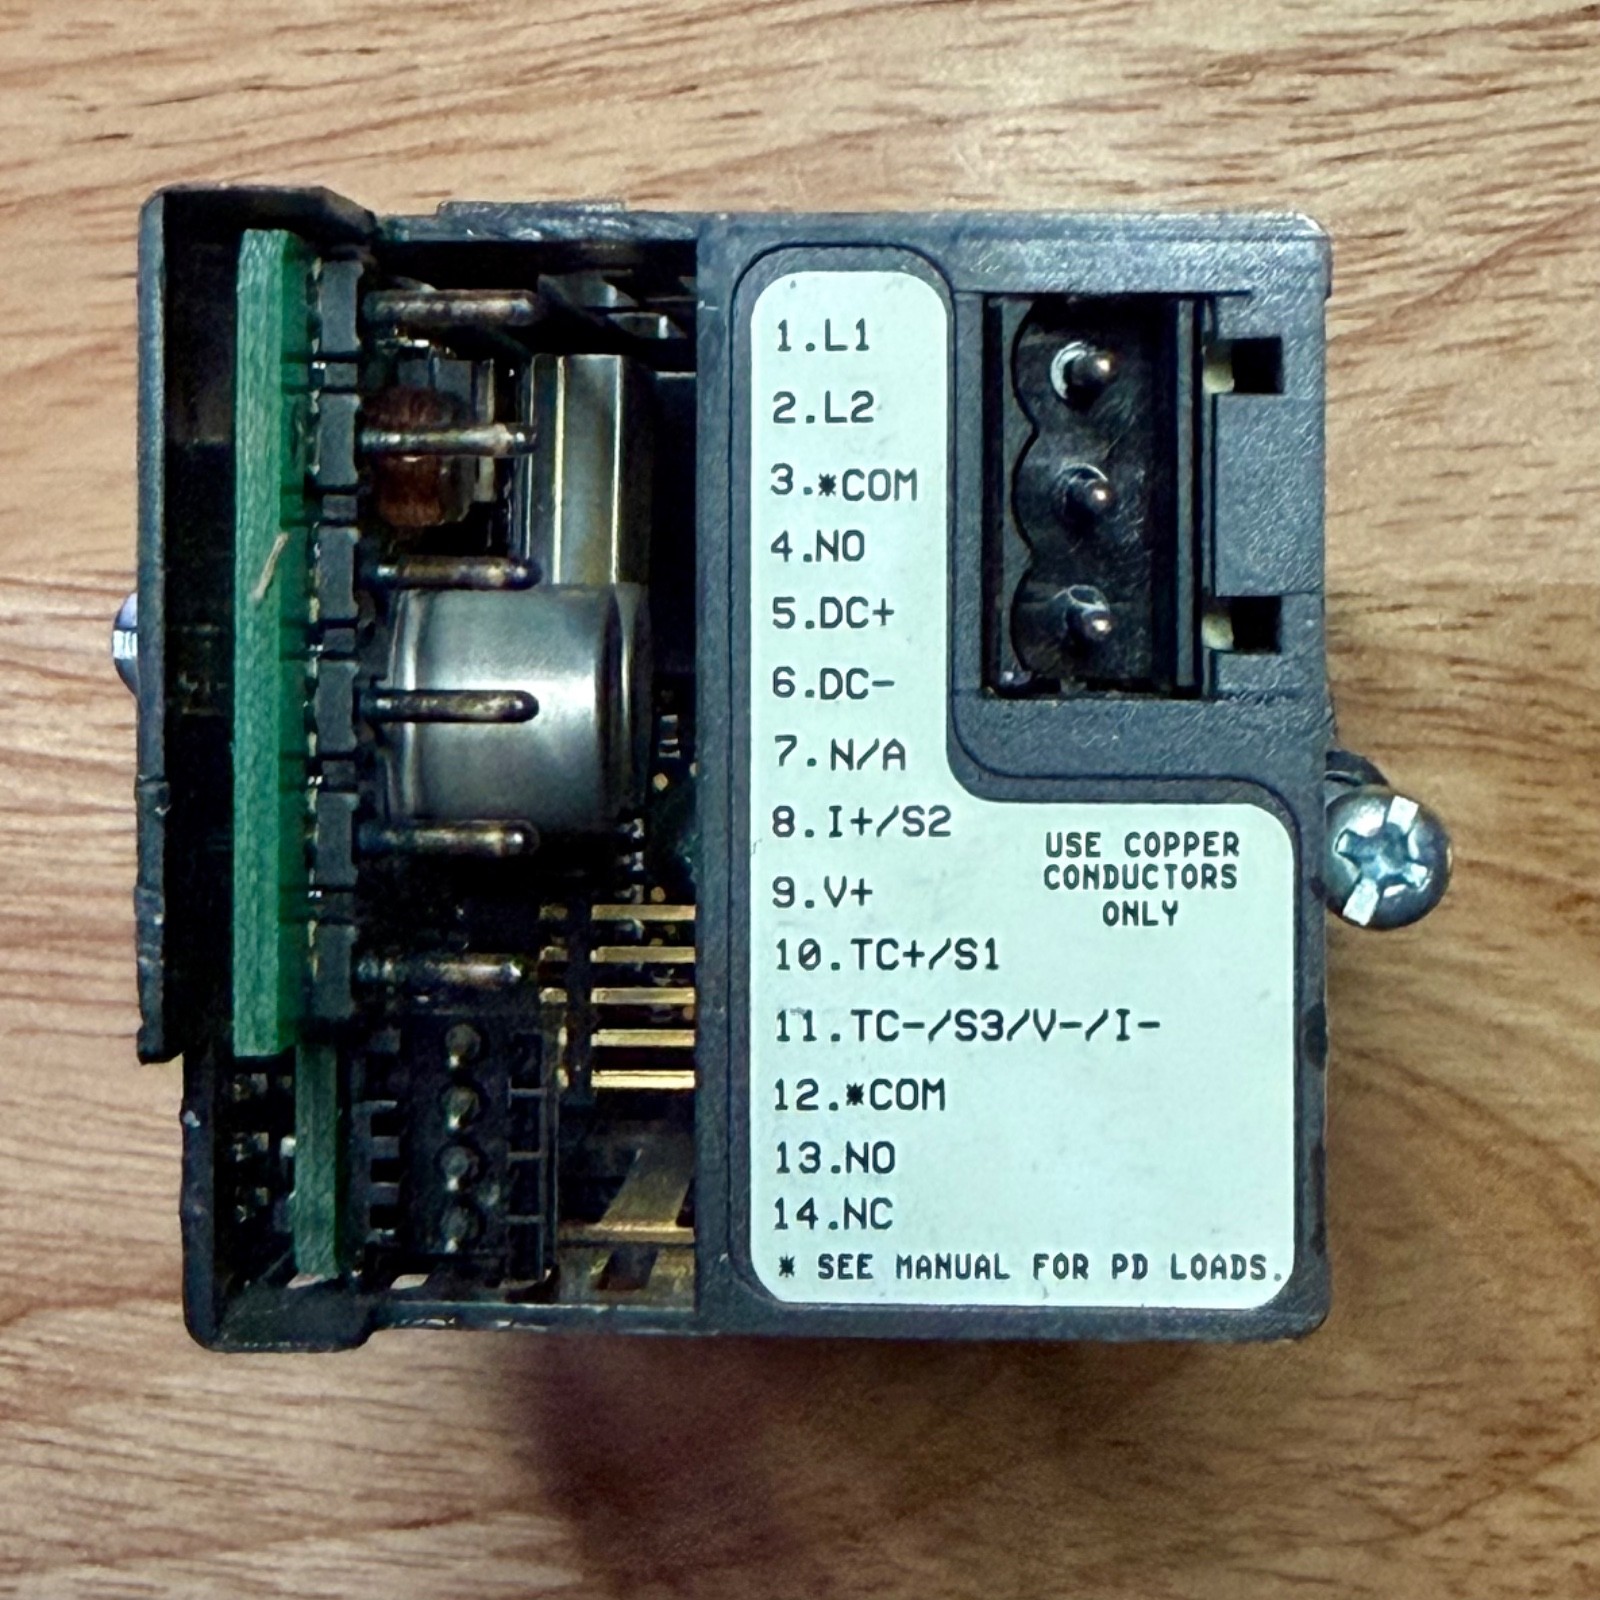 1.L1
2.L2
3.*COM
4.NO
5.DC+
6.DC-
7.N/A
8.I+/S2
9.V+
10.TC+/S1
11.TC-/S3/V-/I-
12.*COM
13.NO
14.NC
* SEE MANUAL FOR PD LOADS.
USE COPPER
CONDUCTORS
ONLY